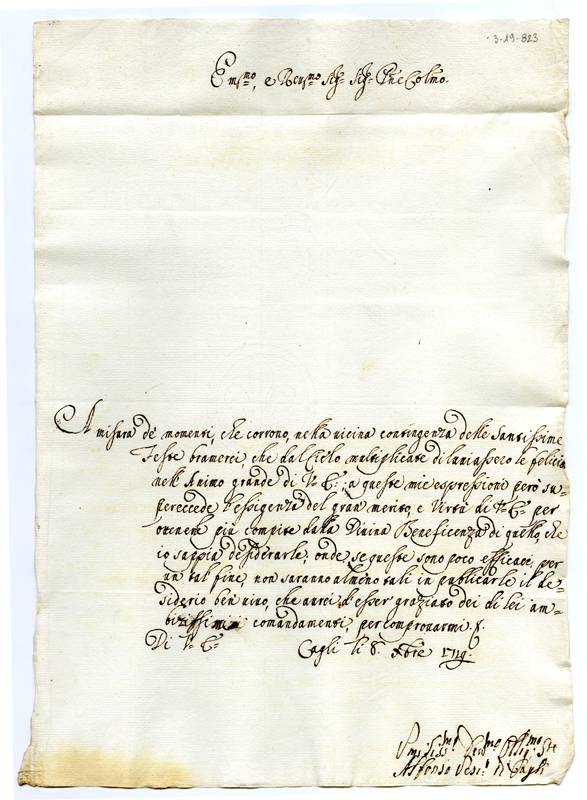 3-19-823
E.mo, e Reu.mo Sig.r Sig.r P̃ne Col.mo
A misura de' momenti, che corrono, nella uicina contingenza delle Santissime
Feste bramerei, che dal Cielo multiplicate diluuiassero le felicità
nell'Animo grande di V. E.; a queste mie espressioni però su=
pereccede l'essigenza del gran merito, e Virtù di V. E. per
otenerle più compite dalla Diuina Beneficenza di quello, che
io sappia desiderarle, onde, se queste sono poco efficaci per
un tal fine, non saranno almeno tali in publicarle il de=
siderio ben uiuo, che aurei d'esser graziato dei di lei am=
bitissimi comandamenti, per comprouarmi
Di V. E. Cagli li 8. Xbre 1719
Alfonso Vesc.o di Cagli